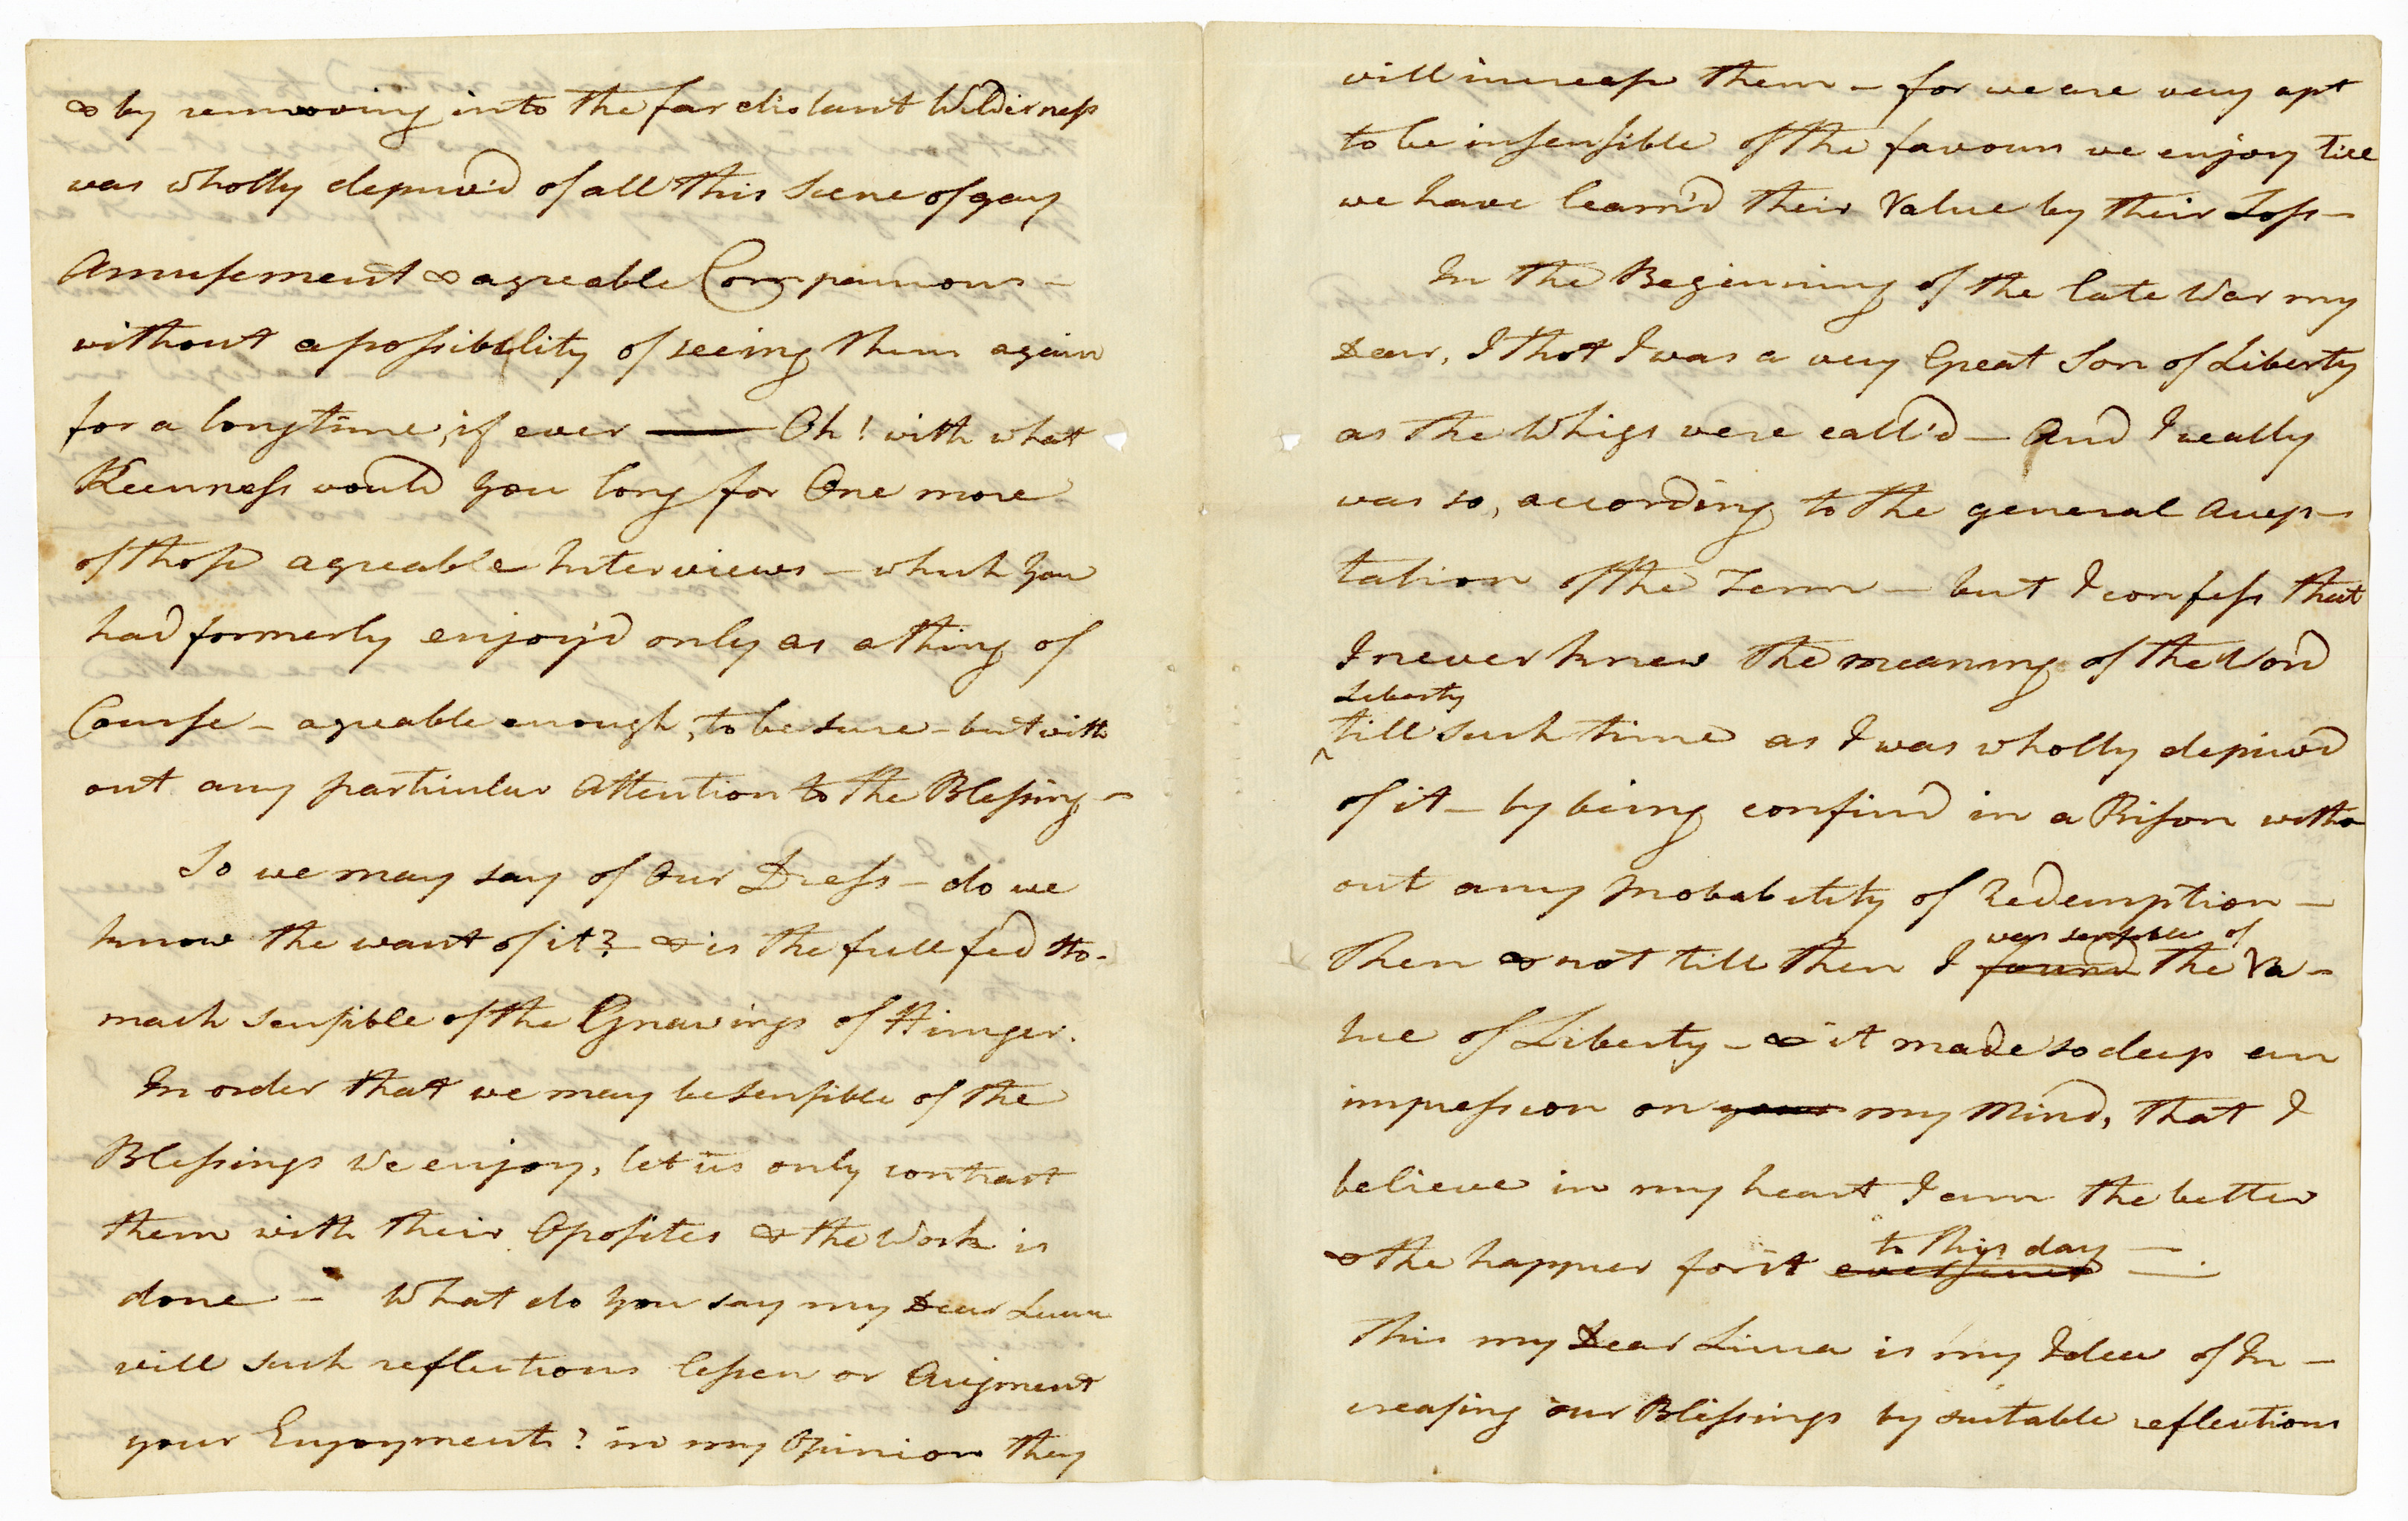 & by removing into the far distant Wilderness
was wholly depriv'd of all this Scene of gay
Amusement & agreable Companions -
without a possibility of seeing them again
for a long time, if ever —— Oh! with what
Keenness would you long for One more
of those agreable Interviews - which you
had formerly enjoy'd only as a thing of
Course - agreable enough, to be sure - but with
out any particular Attention to the Blessing -
So we may say of Our Dress - do we
know the want of it? - & is the full fed sto-
mach sensible of the Gnawings of Hunger.
In order that we may be sensible of the
Blessings we enjoy, let us only contrast
them with their Oposites & the Work is
done - What do you say my Dear
will such reflections lessen or Augment
your Enjoyments? in my Opinion they
will increase them - for we are very apt
to be insensible of the favours we enjoy till
we have learn'd their Value by their Loss -
In the Beginning of the late War my
Dear, I thot I was a very Great Son of Liberty
as the Whigs were call'd - And I really
was so, according to the general Accep-
tation of the Term - but I confess that
I never knew the meaning of the Word
Liberty
till such time as I was wholly depriv'd
of it - by being confin'd in a Prison with-
out any probability of Redemption -
was sensible of
Then & not till then I found the Va-
lue of Liberty - & it made so deep an
impression on your my Mind, that I
believe in my heart I am the better
to this day —
& the happier for it ever since —.
This my Dear is my Idea of In-
creasing our Blessings by suitable reflections